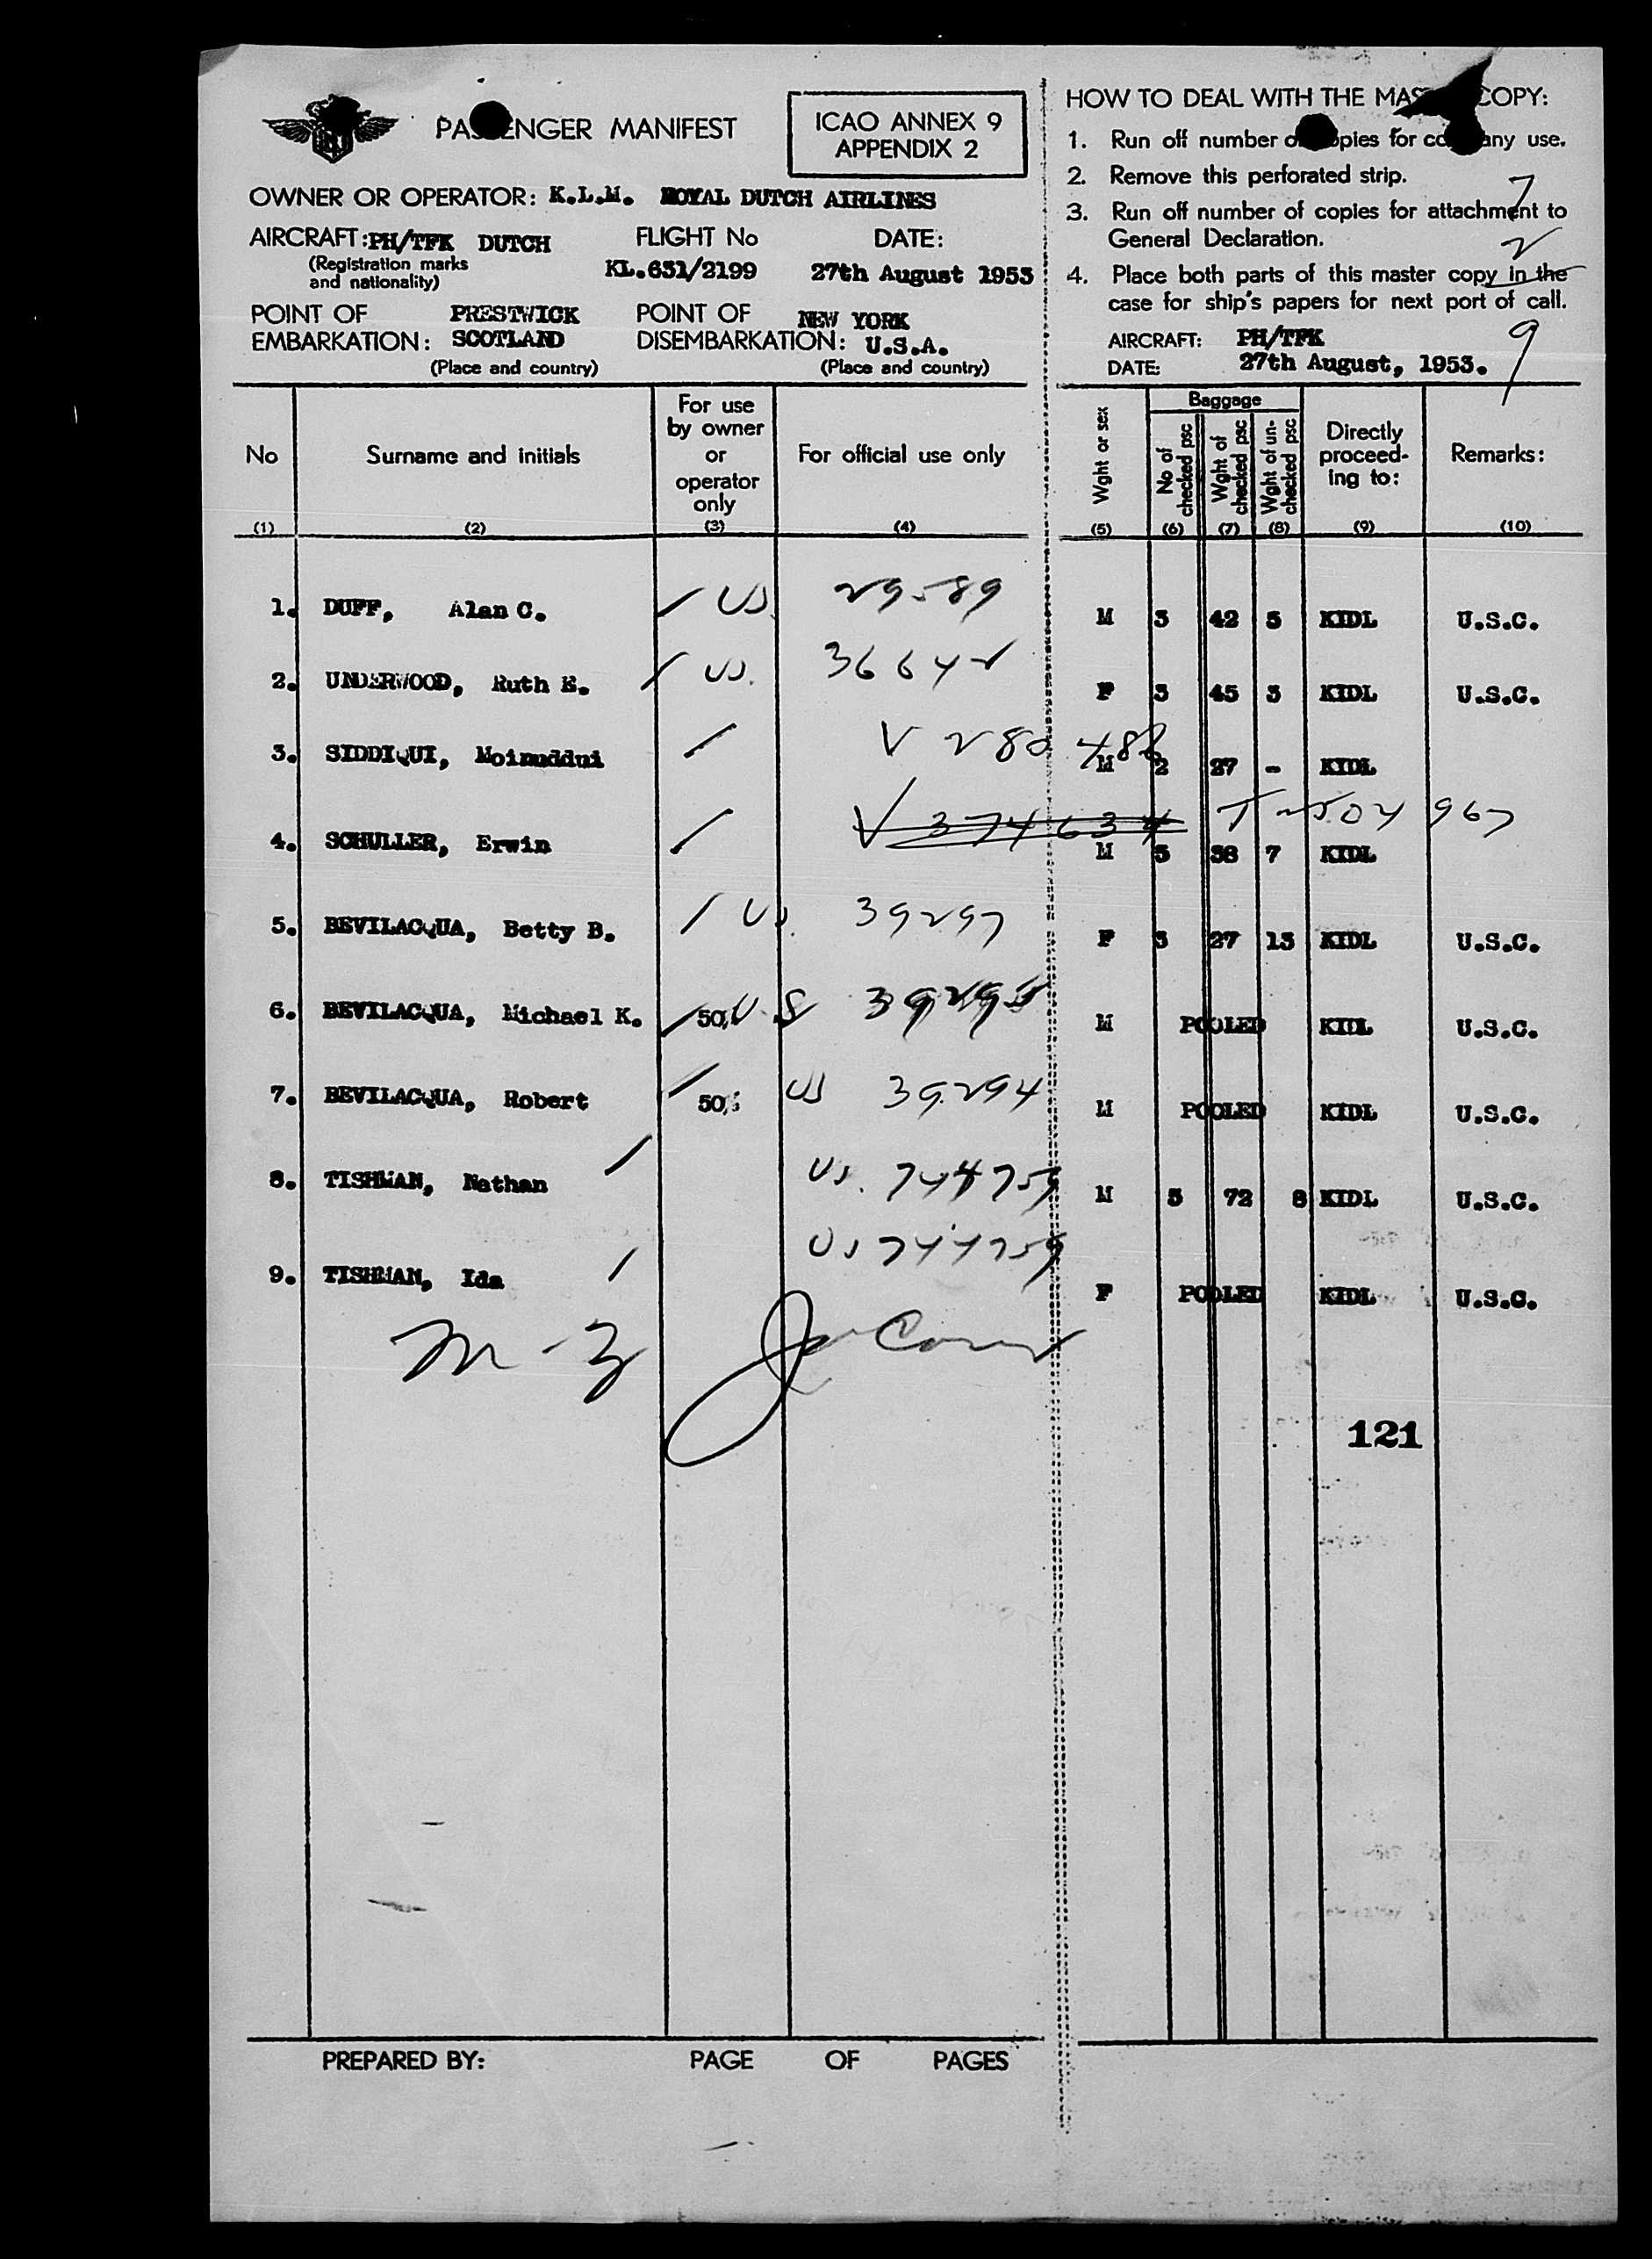 PASSENGER MANIFEST
ICAO ANNEX 9
APPENDIX 2
OWNER OR OPERATOR: K.L.M. ROYAL DUTCH AIRLINES
AIRCRAFT: PH/TFK DUTCH
(Registration marks
and nationality)
FLIGHT No
KL.631/2199
DATE:
27th August 1953
POINT OF
EMBARKATION:
PRESTWICK
SCOTLAND
(Place and country)
POINT OF
DISEMBARKATION:
NEW YORK
U.S.A.
(Place and country)
HOW TO DEAL WITH THE COPY:
1. Run off number copies for company use.
2. Remove this perforated strip.
3. Run off number of copies for attachment to
General Declaration.
4. Place both parts of this master copy in the
case for ship's papers for next port of call.
7
2
9
AIRCRAFT: PH/TFK
DATE: 27th August, 1953.
No
(1)
Surname and initials
(2)
For use
by owner
or
operator
only
(3)
For official use only
(4)
Wght or sex
(5)
Baggage
No of
checked psc
(6)
Wght of
checked psc
(7)
Wght of un-
checked psc
(8)
Directly
proceed-
ing to:
(9)
Remarks:
(10)
1. DUFF, Alan C. US 29589 M 3 42 5 KIDL U.S.C.
2. UNDERWOOD, Ruth E. US. 36642 F 3 45 3 KIDL U.S.C.
3. SIDDIQUI, Moinuddui V 280 488 M 2 27 - KIDL
4. SCHULLER, Erwin V 374634 T 1504 967 M 3 38 7 KIDL
5. BEVILACQUA, Betty B. US. 39297 F 3 27 13 KIDL U.S.C.
6. BEVILACQUA, Michael K. 50% U.S 39295 M POOLED KIDL U.S.C.
7. BEVILACQUA, Robert 50% US 39294 M POOLED KIDL U.S.C.
8. TISHMAN, Nathan US. 744759 M 5 72 8 KIDL U.S.C.
9. TISHMAN, Ida US 744759 F POOLED KIDL U.S.C.
121
PREPARED BY: PAGE OF PAGES